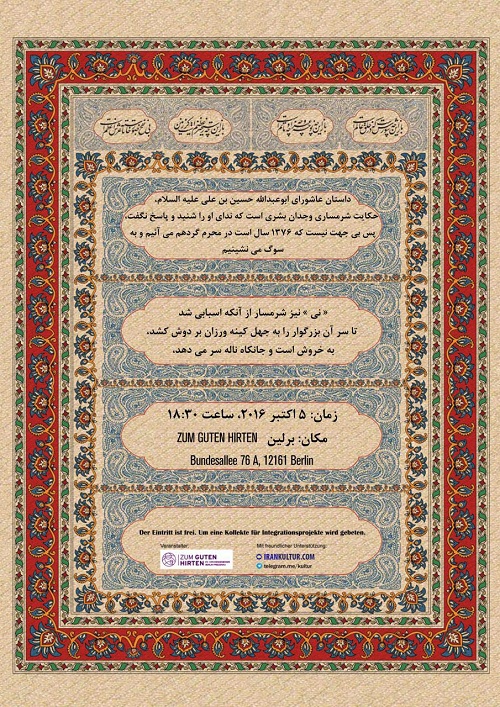 باز این چه شورش است که در خلق عالم است
باز این چه نوحه و چه عزا و چه ماتم است
باز این چه رستخیز عظیم است کز زمین
بی نفخ صور خاسته تا عرش اعظم است
داستان عاشورای ابوعبدالله حسین بن علی علیه السلام،
حکایت شرمساری وجدان بشری است که ندای او را شنید و پاسخ نگفت،
پس بی جهت نیست که ۱۳۷۶ سال است در محرم گردهم می آئیم و به
سوگ می نشینیم
« نی » نیز شرمسار از آنکه اسبابی شد
تا سر آن بزرگوار را به جهل کینه ورزان بر دوش کشد،
به خروش است و جانکاه ناله سر می دهد.
زمان: ۵ اکتبر ۲۰۱۶، ساعت ۱۸:۳۰
مکان: برلین ZUM GUTEN HIRTEN
Bundesallee 76 A, 12161 Berlin
Der Eintritt ist frei. Um eine Kollekte für Integrationsprojekte wird gebeten.
Veranstalter:
ZUM GUTEN
HIRTEN
Mit freundlicher Unterstützung:
IRANKULTUR.COM
telegram.me/kultur